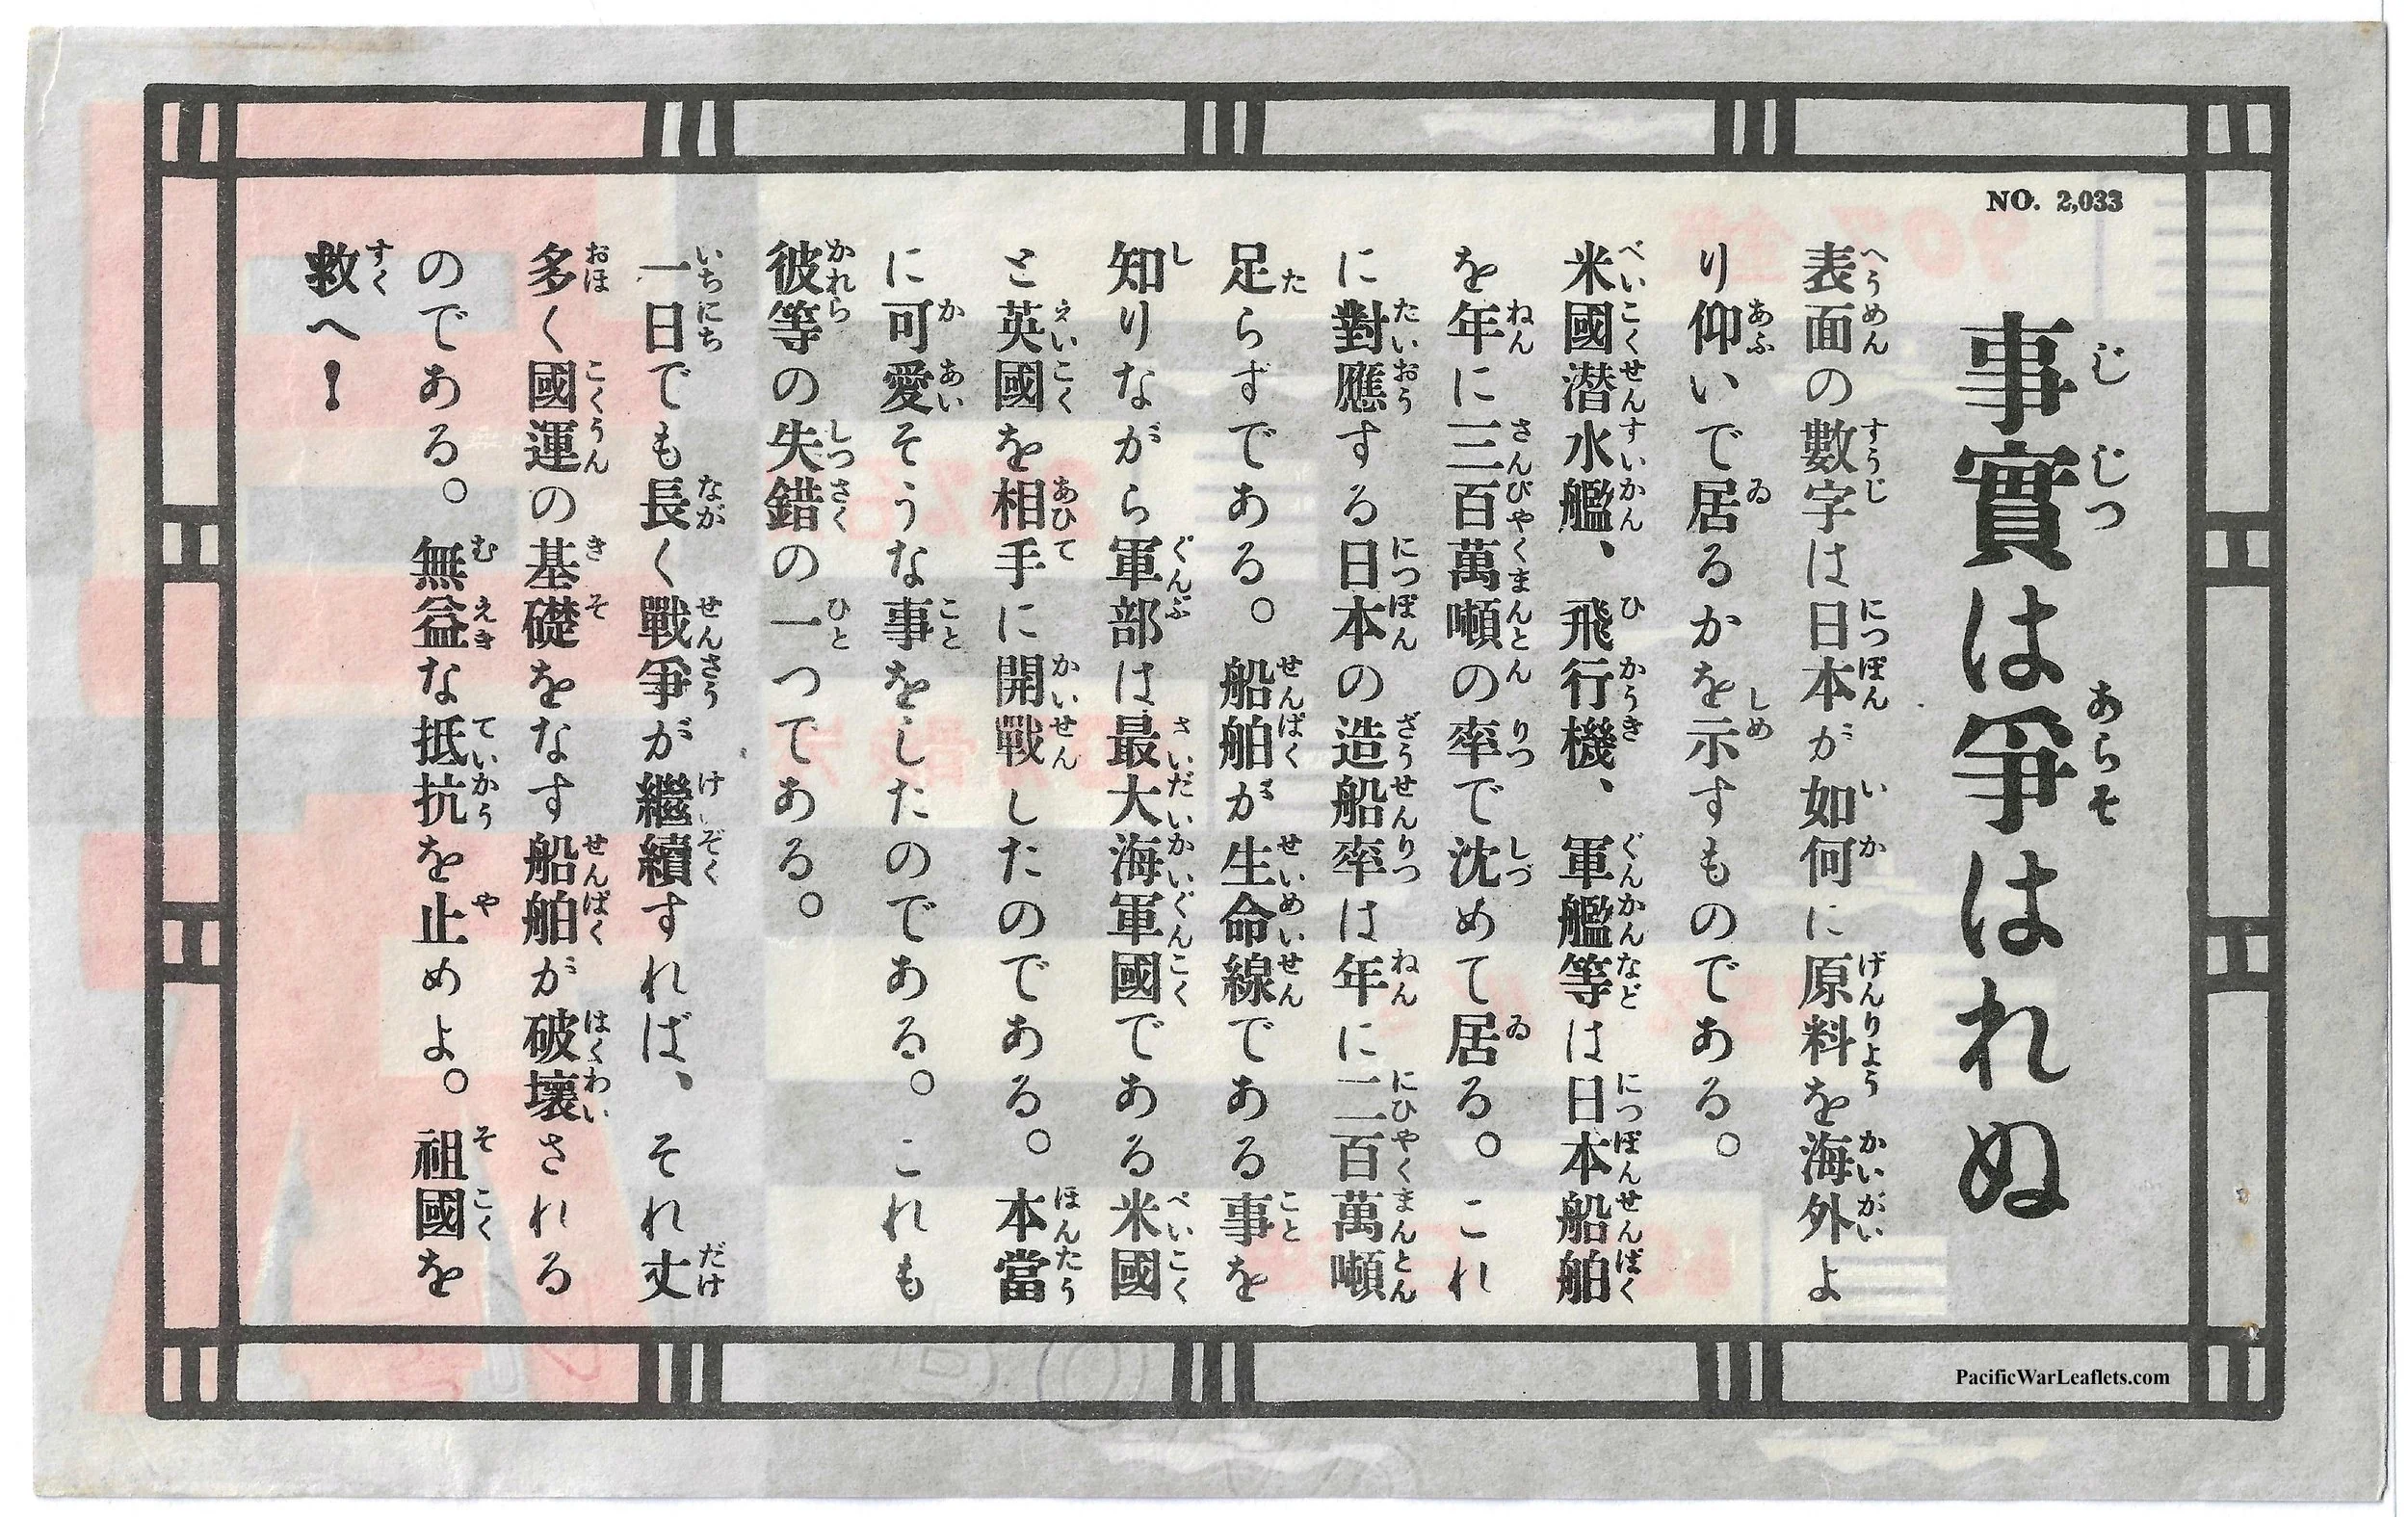 NO. 2,033
事實は爭はれぬ
表面の數字は日本が如何に原料を海外よ
り仰いで居るかを示すものである。
米國潜水艦、飛行機、軍艦等は日本船舶
を年に三百萬噸の率で沈めて居る。これ
に對應する日本の造船率は年に二百萬噸
足らずである。船舶が生命線である事を
知りながら軍部は最大海軍國である米國
と英國を相手に開戰したのである。本當
に可愛そうな事をしたのである。これも
彼等の失錯の一つである。
一日でも長く戰爭が繼續すれば、それ丈
多く國運の基礎をなす船舶が破壞される
のである。無益な抵抗を止めよ。祖國を
救へ!
PacificWarLeaflets.com